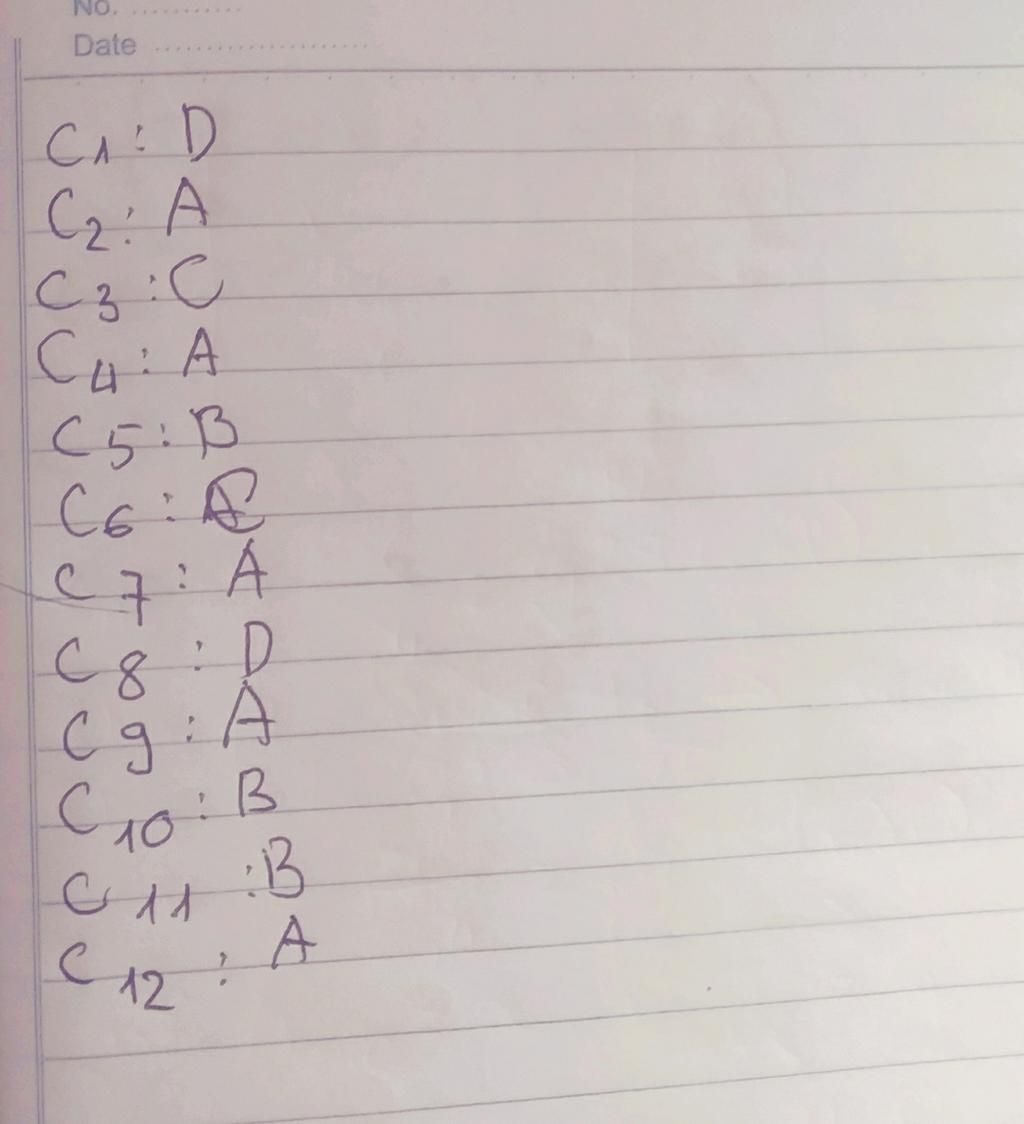 No. ............
Date ......................
C1: D
C2: A
C3: C
C4: A
C5: B
C6: C
C7: A
C8: D
C9: A
C10: B
C11: B
C12: A